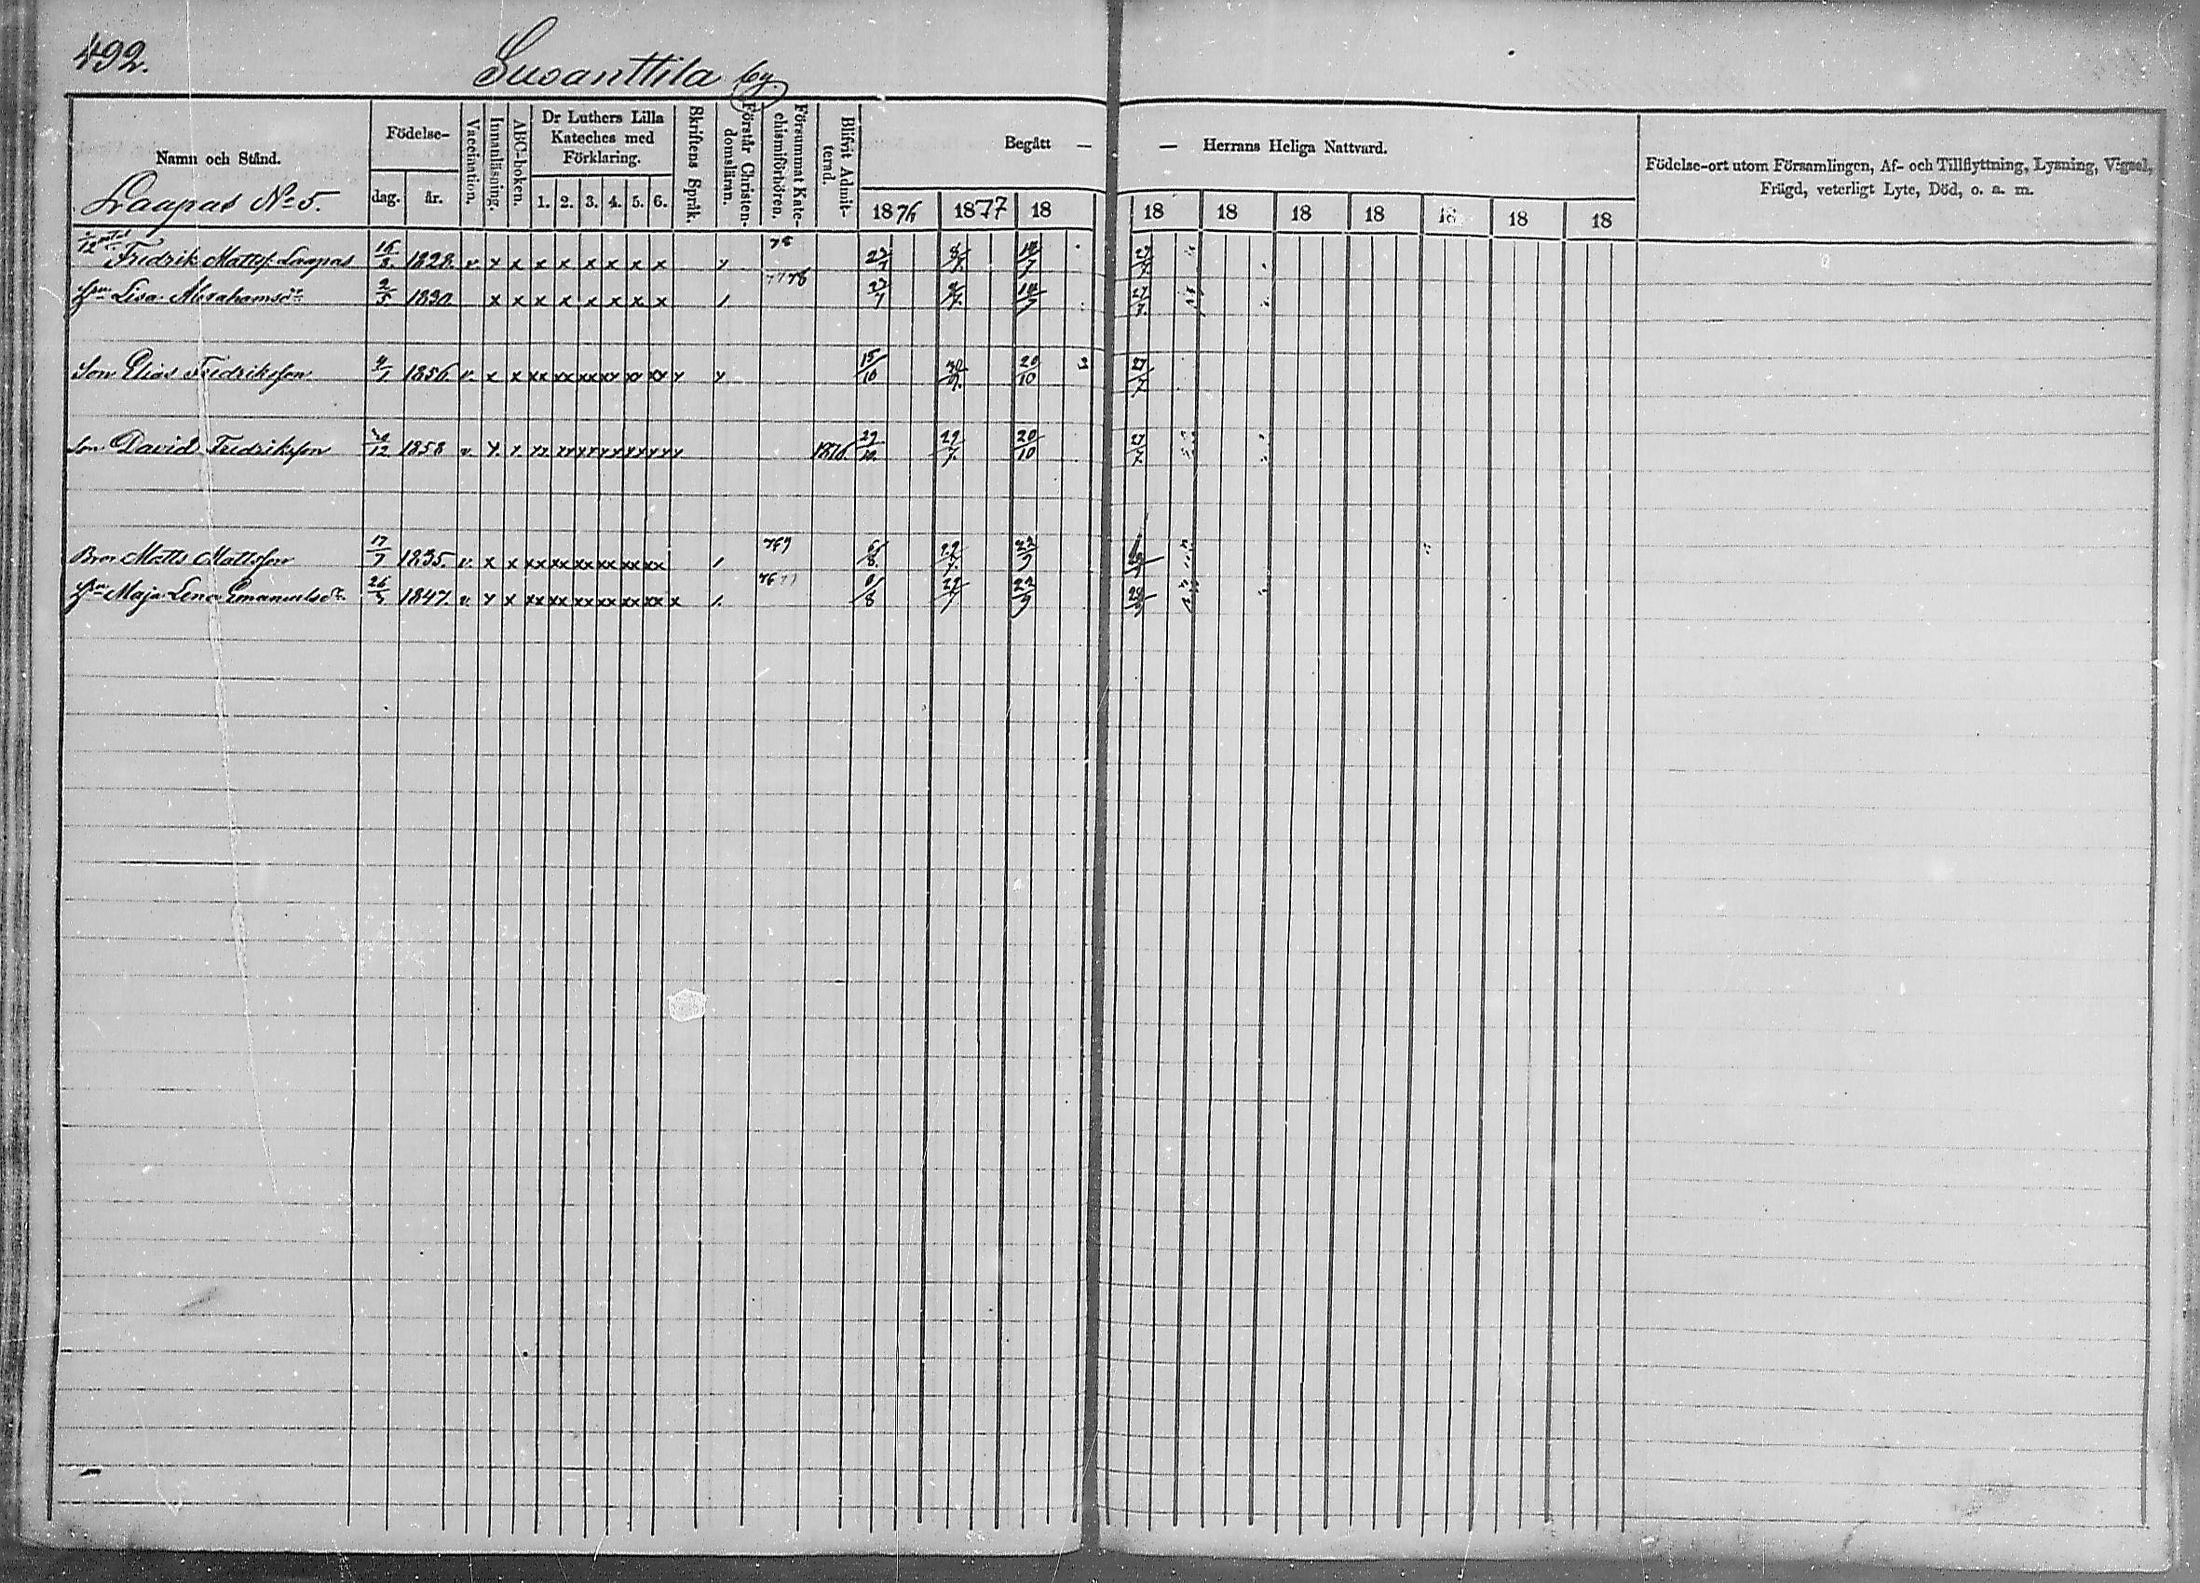 492.
Susanttila by.
Namn och Stånd.
Födelse-
dag. år.
Vaccination.
Innanläsning.
ABC-boken.
Dr Luthers Lilla
Kateches med
Förklaring.
1. 2. 3. 4. 5. 6.
Skriftens Språk.
Förstår Christen-
domsläran.
Försummat Kate-
chismiförhören.
Blifvit Admit-
terad.
Begått — — Herrans Heliga Nattvard.
1876 1877 18 18 18 18 18 18 18 18
Födelse-ort utom Församlingen, Af- och Tillflyttning, Lysning, Vigsel,
Frägd, veterligt Lyte, Död, o. a. m.
Laapas No 5.
Fredrik Mattsf. Laapas 16/8 1828. v. x x x x x x x x 78 10/7 27/7
Hu Lisa Abrahamsdr 2/5 1830 x x x x x x x x 77 78 10/7 27/7
Son Elias Fredriksson 1856. v. x x xx xx xx xx xx xx 15/10 20/10 27/7
Son David Fredriksson 1858 v. 1876. 29/10. 29/7. 20/10 27/7.
Bror Matts Mattsson 17/7 1835. v. x x xx xx xx xx xx xx 6/8. 22/7. 22/9
Hu Maja Lena Emanuelsdr 1847. v. x x xx xx xx xx xx xx x 6/8 22/7 22/9 28/9